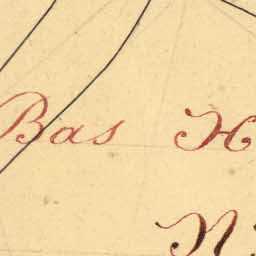 Bas H
N